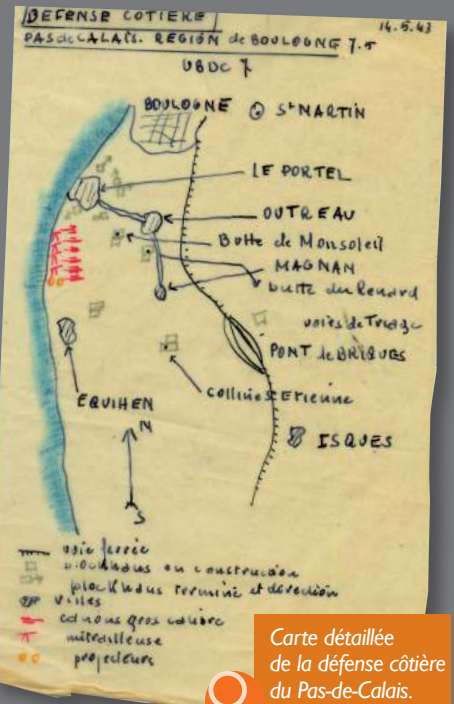 DEFENSE COTIERE
14.5.43
PAS de CALAIS. REGION de BOULOGNE 7.5
UBDC 7
BOULOGNE
St MARTIN
LE PORTEL
OUTREAU
Butte de Monsoleil
MAGNAN
butte du Renard
voies de Triage
PONT de BRIQUES
Colline St Etienne
EQUIHEN
ISQUES
N
S
voie ferrée
blockhaus en construction
blockhaus terminé et direction
villes
canons gros calibre
mitrailleuse
projecteurs
Carte détaillée
de la défense côtière
du Pas-de-Calais.